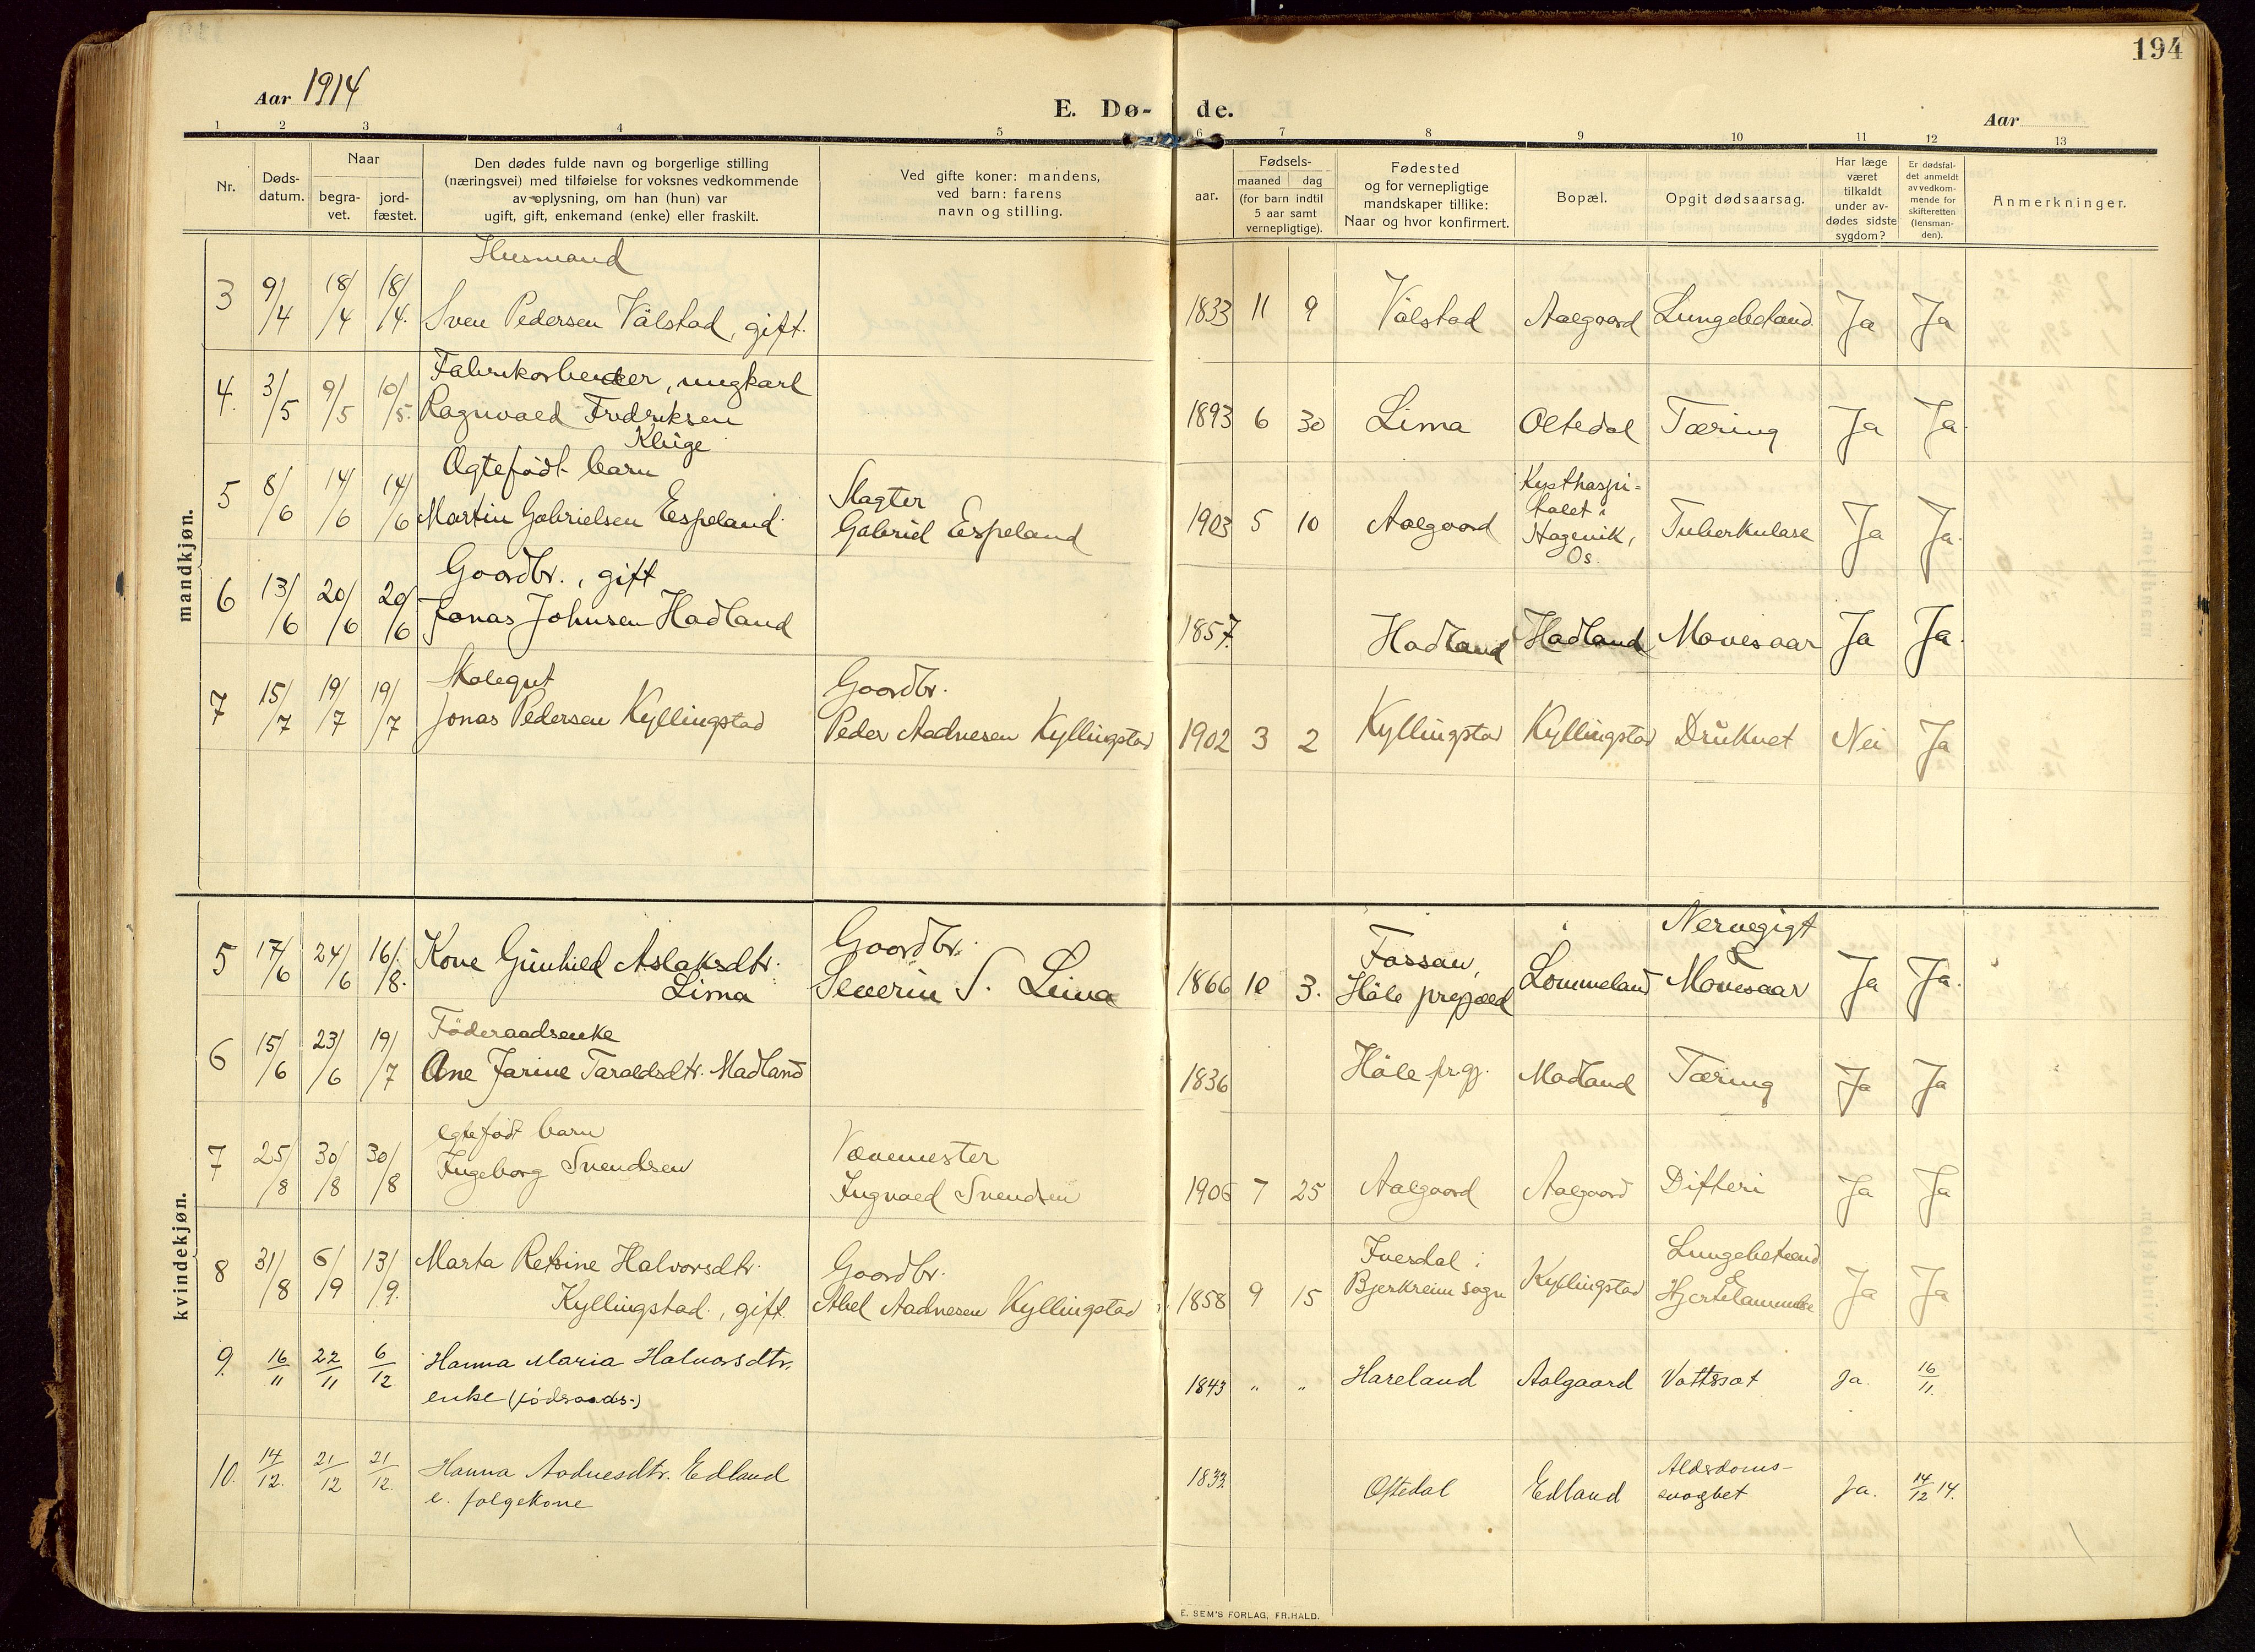 194
Aar 1914
E. Dø- de.
Aar
1 2 3 4 5 6 7 8 9 10 11 12 13
Nr.
Døds-
datum.
Naar
begra-
vet.
jord-
fæstet.
Den dødes fulde navn og borgerlige stilling
(næringsvei) med tilføielse for voksnes vedkommende
av oplysning, om han (hun) var
ugift, gift, enkemand (enke) eller fraskilt.
Ved gifte koner: mandens,
ved barn: farens
navn og stilling.
Fødsels-
aar.
maaned dag
(for barn indtil
5 aar samt
vernepligtige).
Fødested
og for vernepligtige
mandskaper tillike:
Naar og hvor konfirmert.
Bopæl.
Opgit dødsaarsag.
Har læge
været
tilkaldt
under av-
dødes sidste
sygdom?
Er dødsfal-
det anmeldt
av vedkom-
mende for
skifteretten
(lensman-
den).
Anmerkninger.
mandkjøn.
Husmand
3 9/4 18/4 18/4. Sven Pedersen Välstad, gift. 1833 11 9 Välstad Aalgaard Lungebetænd. Ja Ja
Fabrikarbeider, ungkarl
4. 3/5 9/5 10/5. Ragnvald Fredriksen 1893 6 30 Lima Oltedal Tæring Ja Ja.
Kluge
Ægtefødt barn
5 8/6 14/6 14/6 Martin Gabrielsen Espeland 1903 5 10 Aalgaard Tuberkulose Ja Ja.
Slagter
Gabriel Espeland
Kysthospi-
talet i
Hagevik,
Os.
Gaardbr., gift
6 13/6 20/6 20/6 Jonas Johnsen Hadland 1857. Hadland Hadland Mavesaar Ja Ja.
Skolegut
7 15/7 19/7 19/7 Jonas Pedersen Kyllingstad
Gaardbr.
Peder Aadnesen Kyllingstad 1902 3 2 Kyllingstad Kyllingstad Druknet Nei Ja
kvindekjøn.
5 17/6 24/6 16/8. Kone Gunhild Aslaksdtr.
Lima
Gaardbr.
Severin S. Lima 1866 10 3.
Fossan,
Høle prgjæld Lommeland
Nervegigt
&
Mavesaar Ja Ja.
Föderaadsenke
6 15/6 23/6 19/7 Ane Jarine Taraldsdtr. Madland 1836 Høle prgj. Madland Tæring Ja Ja
egtefødt barn
7 25/8 30/8 30/8 Ingeborg Svendsen
Vævemester
Ingvald Svendsen 1906 7 25 Aalgaard Aalgaard Difteri Ja Ja
8 31/8 6/9 13/9. Marta Retsine Halvorsdtr.
Kyllingstad, gift.
Gaardbr.
Abel Aadnesen Kyllingstad 1858 9 15
Ivesdal i
Bjerkreim sogn Kyllingstad
Lungebetænd
&
Hjertelammelse Ja Ja
9. 16/11 22/11 6/12 Hanna Maria Halvorsdtr.
enke (födraads-)
1843 " " Hareland Aalgaard Vattssot Ja. 16/11.
10. 14/12. 21/12 21/12. Hanna Aadnesdtr. Edland
e. folgekone
1833 Oftedal Edland
Alderdoms-
svaghet Ja. 14/12 14.
E. SEM'S FORLAG, FR.HALD.